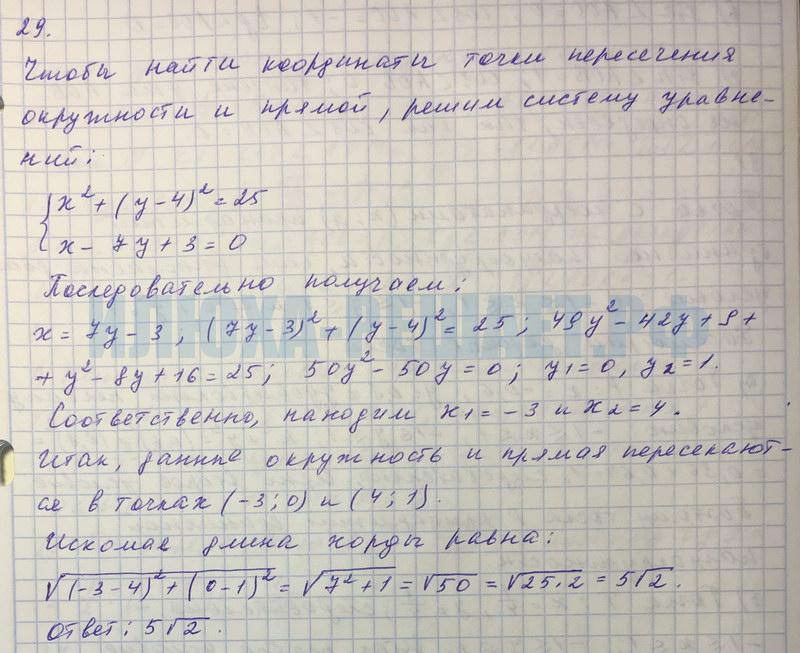 29.
Чтобы найти координаты точки пересечения
окружности и прямой, решим систему уравне-
ний:
{x² + (y-4)² = 25
x - 7y + 3 = 0
Последовательно получаем:
x = 7y - 3, (7y-3)² + (y-4)² = 25; 49y² - 42y + 9 +
+ y² - 8y + 16 = 25; 50y² - 50y = 0; y1 = 0, y2 = 1.
Соответственно, находим x1 = -3 и x2 = 4.
Итак, данные окружность и прямая пересекают-
ся в точках (-3; 0) и (4; 1).
Искомая длина хорды равна:
√(-3-4)² + (0-1)² = √7² + 1 = √50 = √25·2 = 5√2.
Ответ: 5√2.
ИЛЮХА-РЕШАЕТ.РФ